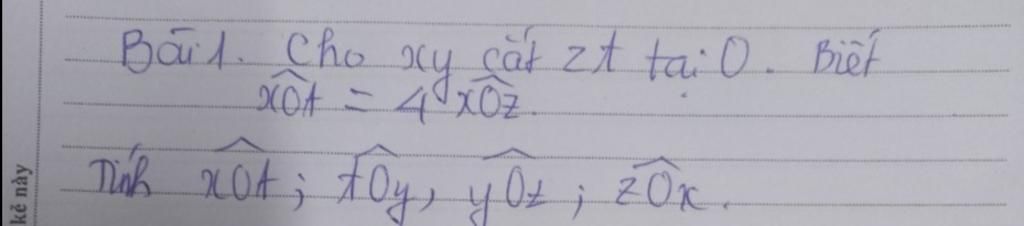 Bài 1. Cho xy cắt zt tại O. Biết
xOt = 4 xOz.
Tính xOt; tOy, yOz; zOx.
kẻ này